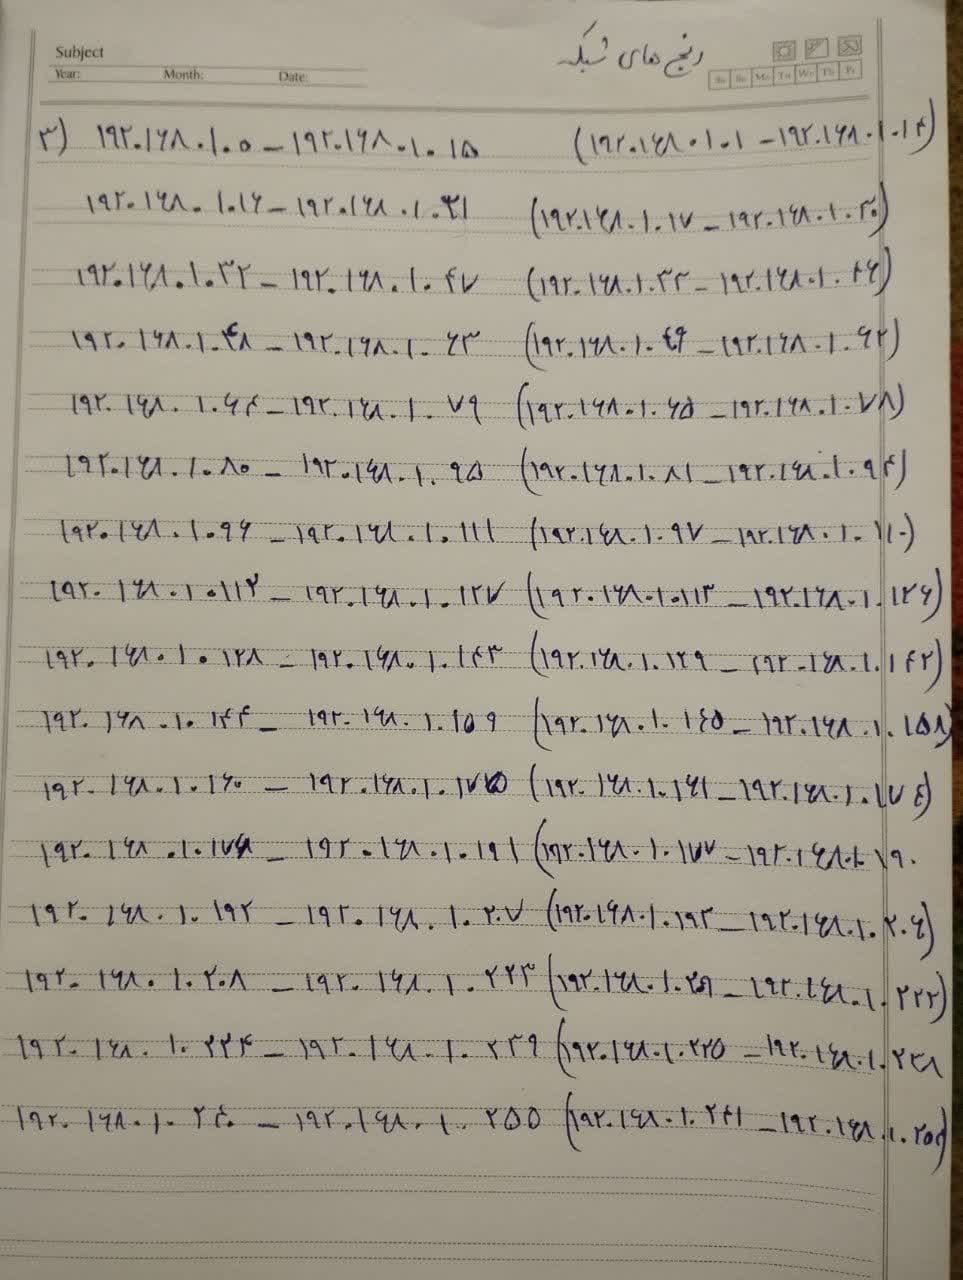 Subject
Year: Month: Date:
رنج های شبکه
Sa Su Mo Tu We Th Fr
۳) ۱۹۲.۱۶۸.۱.۰ - ۱۹۲.۱۶۸.۱.۱۵ (۱۹۲.۱۶۸.۱.۱ - ۱۹۲.۱۶۸.۱.۱۴)
۱۹۲.۱۶۸.۱.۱۶ - ۱۹۲.۱۶۸.۱.۳۱ (۱۹۲.۱۶۸.۱.۱۷ - ۱۹۲.۱۶۸.۱.۳۰)
۱۹۲.۱۶۸.۱.۳۲ - ۱۹۲.۱۶۸.۱.۴۷ (۱۹۲.۱۶۸.۱.۳۳ - ۱۹۲.۱۶۸.۱.۴۶)
۱۹۲.۱۶۸.۱.۴۸ - ۱۹۲.۱۶۸.۱.۶۳ (۱۹۲.۱۶۸.۱.۴۹ - ۱۹۲.۱۶۸.۱.۶۲)
۱۹۲.۱۶۸.۱.۶۴ - ۱۹۲.۱۶۸.۱.۷۹ (۱۹۲.۱۶۸.۱.۶۵ - ۱۹۲.۱۶۸.۱.۷۸)
۱۹۲.۱۶۸.۱.۸۰ - ۱۹۲.۱۶۸.۱.۹۵ (۱۹۲.۱۶۸.۱.۸۱ - ۱۹۲.۱۶۸.۱.۹۴)
۱۹۲.۱۶۸.۱.۹۶ - ۱۹۲.۱۶۸.۱.۱۱۱ (۱۹۲.۱۶۸.۱.۹۷ - ۱۹۲.۱۶۸.۱.۱۱۰)
۱۹۲.۱۶۸.۱.۱۱۲ - ۱۹۲.۱۶۸.۱.۱۲۷ (۱۹۲.۱۶۸.۱.۱۱۳ - ۱۹۲.۱۶۸.۱.۱۲۶)
۱۹۲.۱۶۸.۱.۱۲۸ - ۱۹۲.۱۶۸.۱.۱۴۳ (۱۹۲.۱۶۸.۱.۱۲۹ - ۱۹۲.۱۶۸.۱.۱۴۲)
۱۹۲.۱۶۸.۱.۱۴۴ - ۱۹۲.۱۶۸.۱.۱۵۹ (۱۹۲.۱۶۸.۱.۱۴۵ - ۱۹۲.۱۶۸.۱.۱۵۸)
۱۹۲.۱۶۸.۱.۱۶۰ - ۱۹۲.۱۶۸.۱.۱۷۵ (۱۹۲.۱۶۸.۱.۱۶۱ - ۱۹۲.۱۶۸.۱.۱۷۴)
۱۹۲.۱۶۸.۱.۱۷۶ - ۱۹۲.۱۶۸.۱.۱۹۱ (۱۹۲.۱۶۸.۱.۱۷۷ - ۱۹۲.۱۶۸.۱.۱۹۰
۱۹۲.۱۶۸.۱.۱۹۲ - ۱۹۲.۱۶۸.۱.۲۰۷ (۱۹۲.۱۶۸.۱.۱۹۳ - ۱۹۲.۱۶۸.۱.۲۰۶)
۱۹۲.۱۶۸.۱.۲۰۸ - ۱۹۲.۱۶۸.۱.۲۲۳ (۱۹۲.۱۶۸.۱.۲۰۹ - ۱۹۲.۱۶۸.۱.۲۲۲)
۱۹۲.۱۶۸.۱.۲۲۴ - ۱۹۲.۱۶۸.۱.۲۳۹ (۱۹۲.۱۶۸.۱.۲۲۵ - ۱۹۲.۱۶۸.۱.۲۳۸
۱۹۲.۱۶۸.۱.۲۴۰ - ۱۹۲.۱۶۸.۱.۲۵۵ (۱۹۲.۱۶۸.۱.۲۴۱ - ۱۹۲.۱۶۸.۱.۲۵۴)